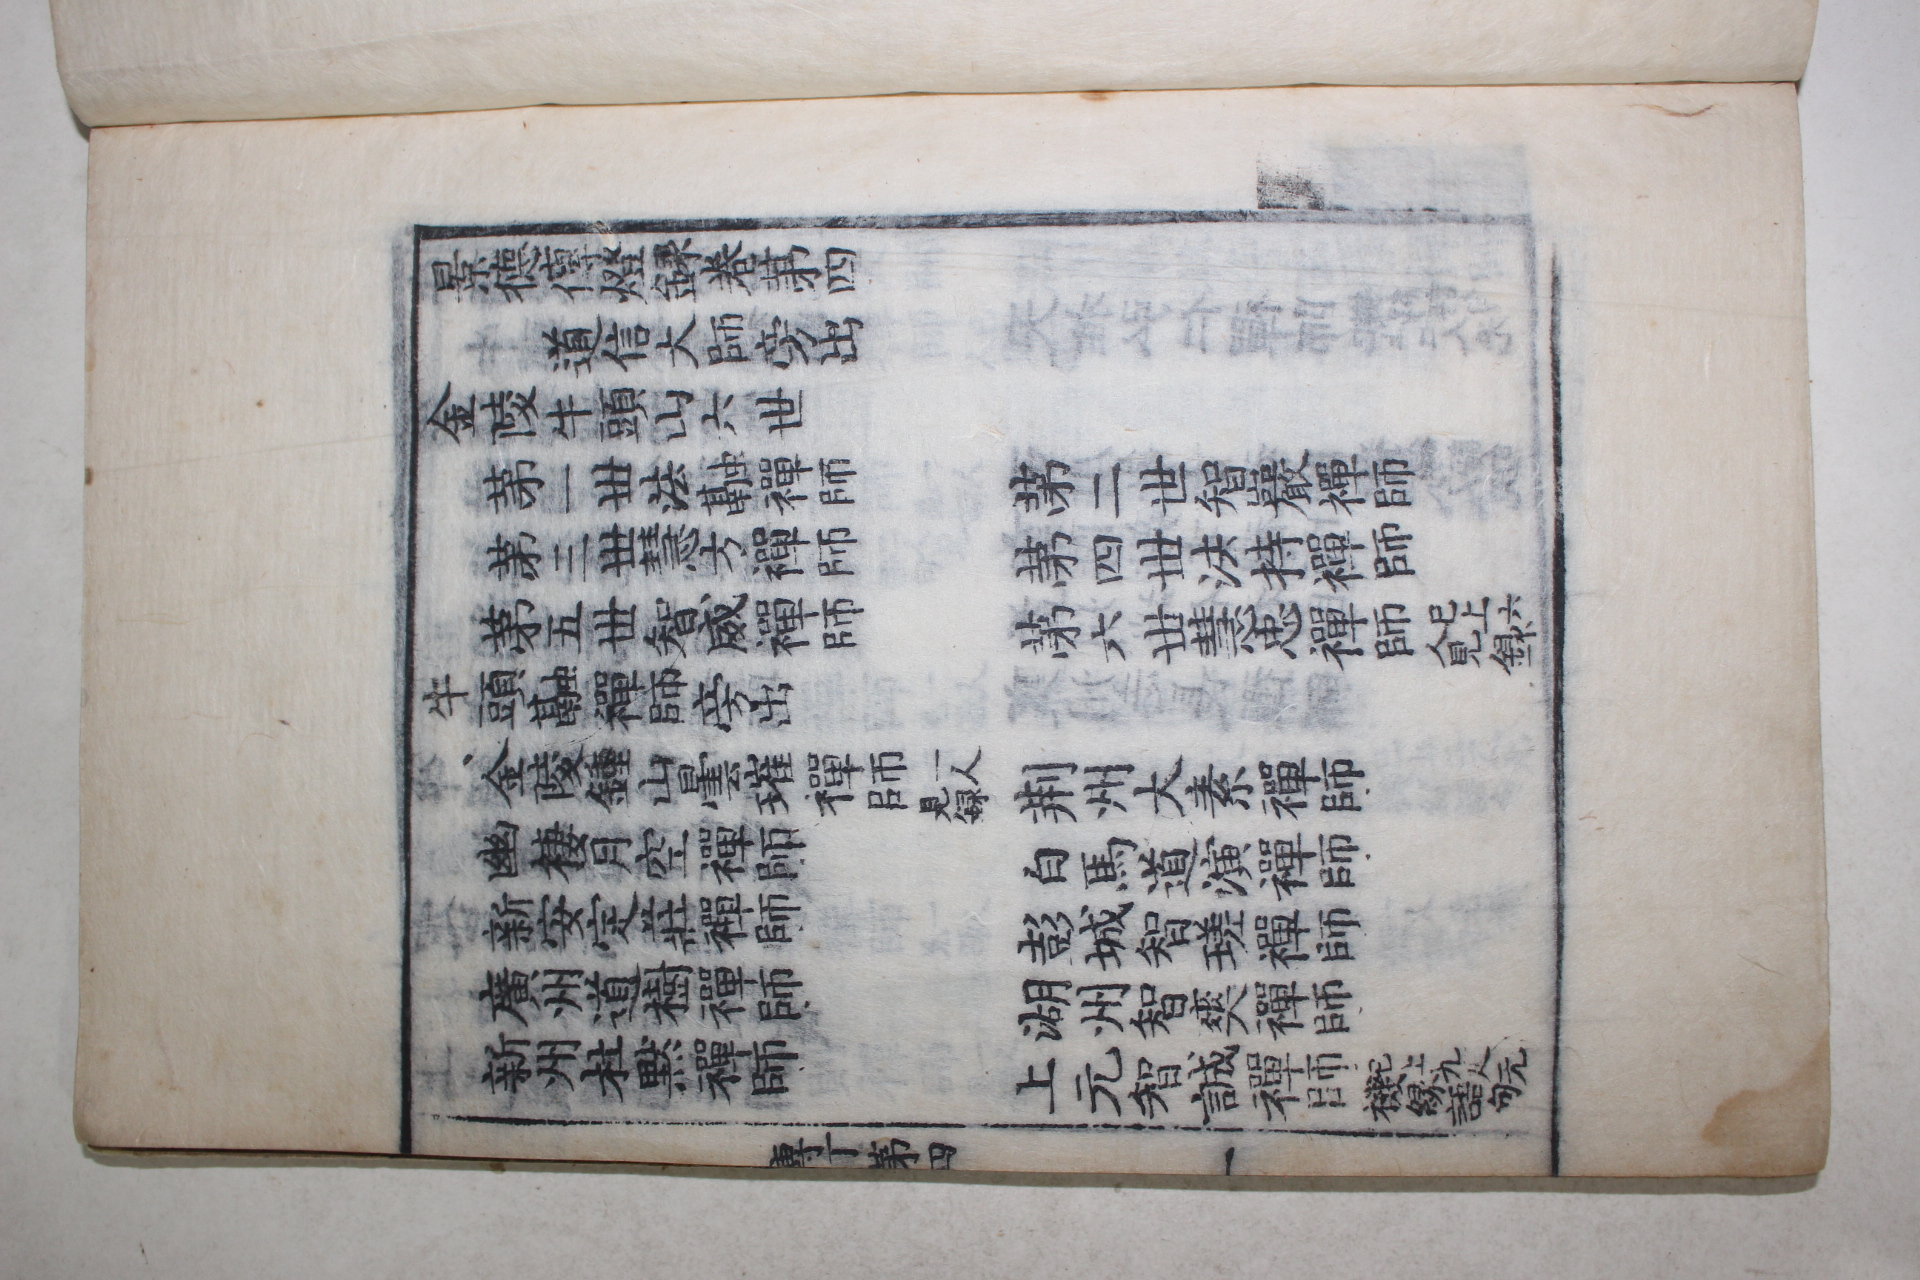 景德傳燈錄卷第四
道信大師旁出
金陵牛頭山六世
第一世法融禪師 第二世智巖禪師
第三世慧方禪師 第四世法持禪師
第五世智威禪師 第六世慧忠禪師 已上六人見錄
牛頭融禪師旁出
金陵鍾山曇璀禪師 一人見錄 荆州大素禪師
幽棲月空禪師 白馬道演禪師
新安定莊禪師 彭城智瑳禪師
廣州道樹禪師 湖州智爽禪師
新州杜默禪師 上元智誠禪師 已上九人元機緣語句
傳丁第四 一